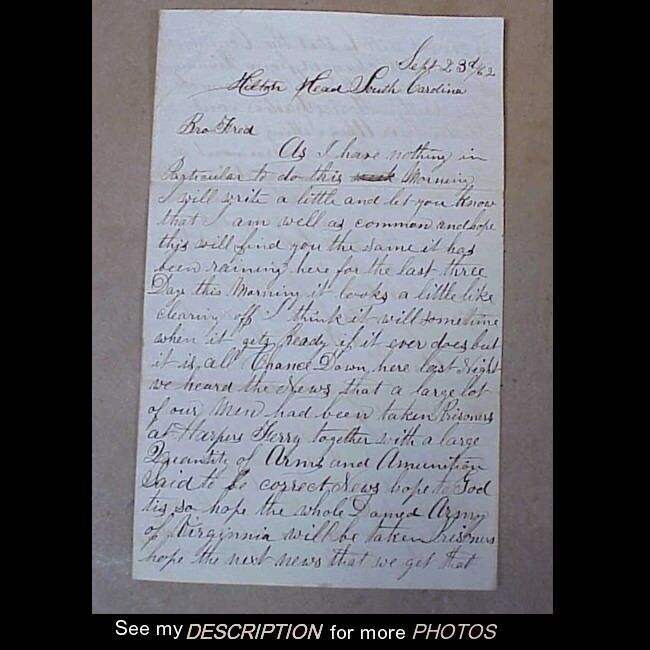 Sept 23d/62
Hilton Head South Carolina
Bro Fred
As I have nothing in
Particular to do this week Morning
I will write a little and let you know
that I am well as common and hope
this will find you the same it has
been raining here for the last three
Days this Morning it looks a little like
clearing off I think it will sometime
when it gets Ready if it ever does but
it is all Chance Down here last Night
we heard the News that a large lot
of our Men had been taken Prisoners
at Harpers Ferry together with a large
Quantity of Arms and Amunition
said to be correct News hope to God
tis so hope the whole Damed Army
of Virginnia will be taken Prisoners
hope the next news that we get that
See my DESCRIPTION for more PHOTOS